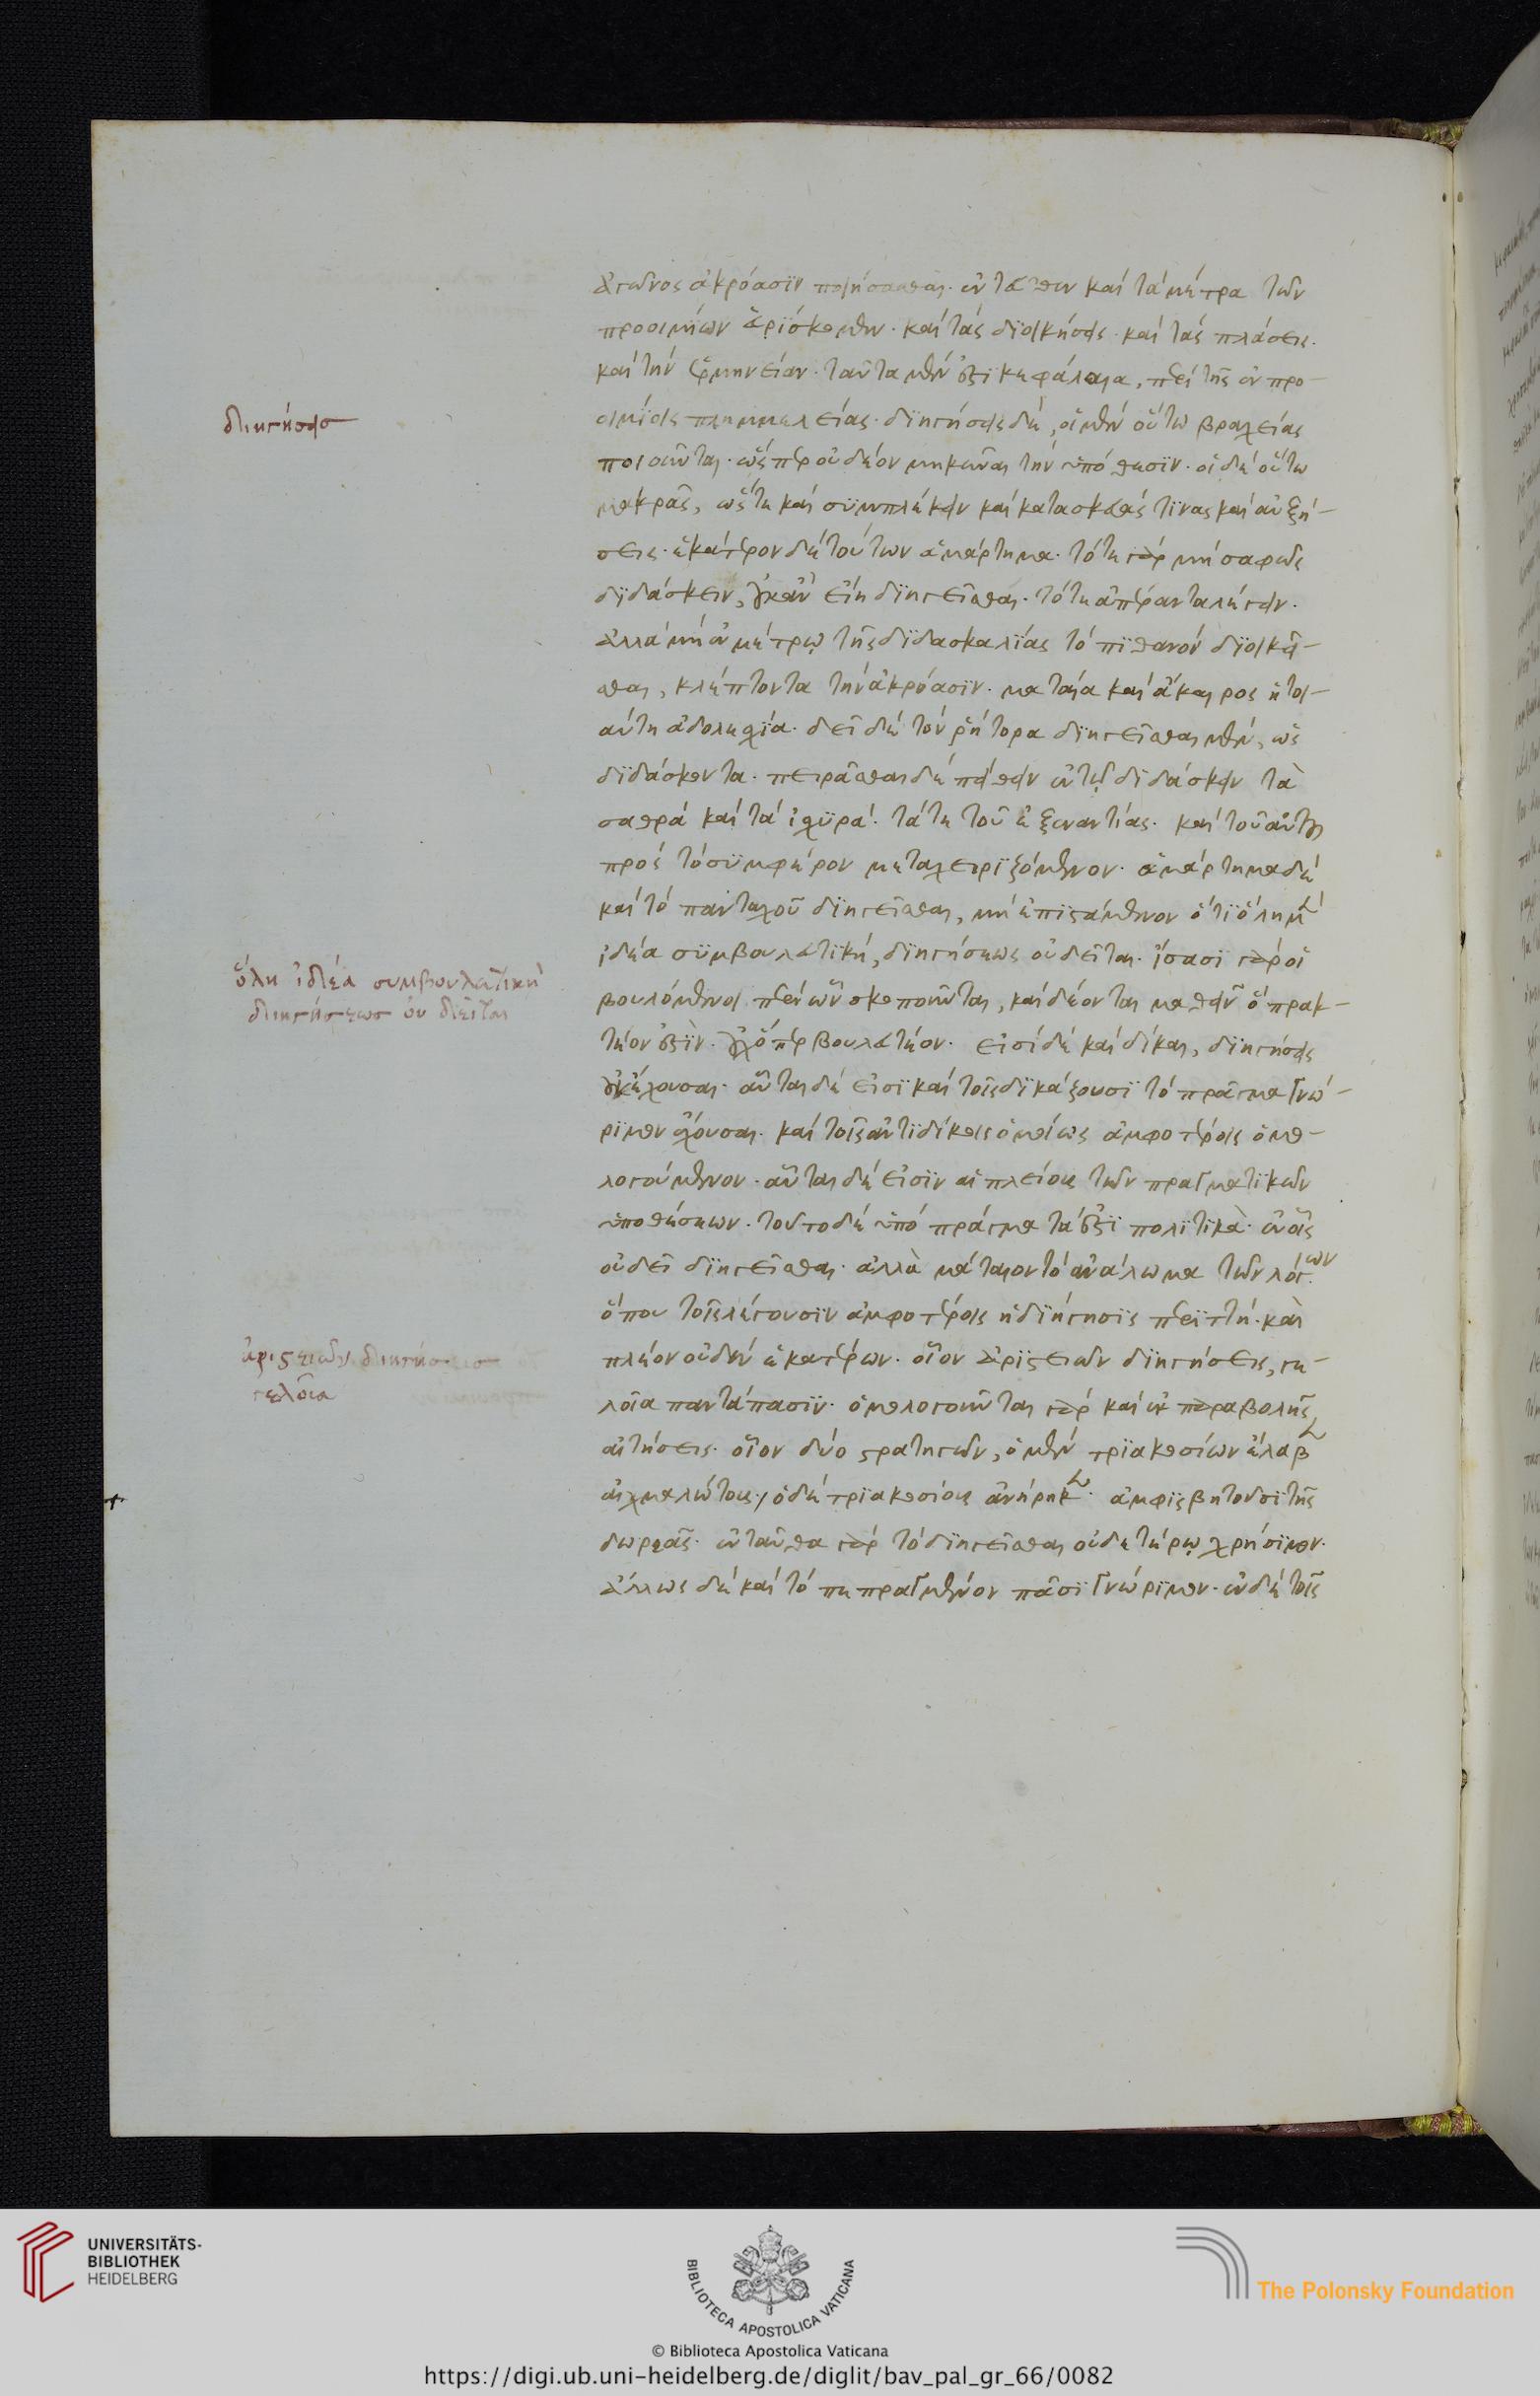 ἀγῶνος ἀκρόασιν ποιήσασθαι. ἐνταῦθεν καὶ τὰ μέτρα τῶν
προοιμίων εὑρίσκομεν. καὶ τὰς διοικήσεις. καὶ τὰς πλάσεις.
καὶ τὴν ἑρμηνείαν. ταῦτα μὲν ἐστι κεφάλαια, περὶ τῆς ἐν προ-
διηγήσεις
οιμίοις πλημμελείας. διηγήσεις δὲ, οἱ μὲν οὕτω βραχείας
ποιοῦνται. ὥσπερ οὐ δέον μηκῦναι τὴν ὑπόθεσιν. οἱ δὲ οὕτω
μακρὰς, ὥστε καὶ συμπλέκειν καὶ κατασκευάς τινας καὶ αὐξή-
σεις. ἑκάτερον δὲ τούτων ἁμάρτημα. τό τε γὰρ μὴ σαφῶς
διδάσκειν, οὐκ ἂν εἴη διηγεῖσθαι. τό τε ἀπέραντα λέγειν.
ἀλλὰ μὴ ἐν μέτρῳ τῆς διδασκαλίας τὸ πιθανὸν διοικεῖ-
σθαι, κλέπτοντα τὴν ἀκρόασιν. ματαία καὶ ἄκαιρος ἡ τοι-
αύτη ἀδολεσχία. δεῖ δὲ τὸν ῥήτορα διηγεῖσθαι μὲν, ὡς
διδάσκοντα. πειρᾶσθαι δὲ πείθειν ἐν τῷ διδάσκειν τὰ
σαθρὰ καὶ τὰ ἰσχυρά. τά τε τοῦ ἐξεναντίας. καὶ τοῦ αὐτοῦ
πρὸς τὸ συμφέρον μεταχειριζόμενον. ἁμάρτημα δὲ
καὶ τὸ πανταχοῦ διηγεῖσθαι, μὴ ἐπιστάμενον ὅτι ὅλη μὲν
ὅλη ἰδέα συμβουλευτικὴ
διηγήσεως οὐ δεῖται
ἰδέα συμβουλευτικὴ, διηγήσεως οὐ δεῖται. ἴσασι γὰρ οἱ
βουλόμενοι περὶ ὧν σκοποῦνται, καὶ δέονται μαθεῖν ὃ πρακ-
τέον ἐστίν. οὐχ ὅπερ βουλευτέον. εἰσὶ δὲ καὶ δίκαι, διηγήσεις
οὐκ ἔχουσαι. αὗται δέ εἰσι καὶ τοῖς δικάζουσι τὸ πρᾶγμα γνώ-
ριμον ἔχουσαι. καὶ τοῖς ἀντιδίκοις ὁμοίως ἀμφοτέροις ὁμο-
λογούμενον. αὗται δέ εἰσιν αἱ πλείους τῶν πραγματικῶν
ὑποθέσεων. τοῦτο δὲ ὑπὸ πράγματά ἐστι πολιτικὰ. ἐν αἷς
οὐ δεῖ διηγεῖσθαι. ἀλλὰ μάταιον τὸ ἀνάλωμα τῶν λόγων
ὅπου τοῖς λέγουσιν ἀμφοτέροις ἡ διήγησις περιττή. καὶ
ἀριστειῶν διηγήσεις
γελοῖα
πλέον οὐδὲν ἑκατέρων. οἷον ἀριστειῶν διηγήσεις, γε-
λοῖα παντάπασιν. ὁμολογοῦνται γάρ καὶ ἐκ παραβολῆς
αἰτήσεις. οἷον δύο στρατηγῶν, ὁ μὲν τριακοσίων ἔλαβεν
αἰχμαλώτους, ὁ δὲ τριακοσίους ἀνῄρηκεν. ἀμφισβητοῦσι τῆς
δωρεᾶς. ἐνταῦθα γὰρ τὸ διηγεῖσθαι οὐδετέρῳ χρήσιμον.
ἄλλως δὲ καὶ τὸ πεπραγμένον πᾶσι γνώριμον. ἐν δὲ τοῖς
UNIVERSITÄTS-
BIBLIOTHEK
HEIDELBERG
BIBLIOTECA APOSTOLICA VATICANA
The Polonsky Foundation
© Biblioteca Apostolica Vaticana
https://digi.ub.uni-heidelberg.de/diglit/bav_pal_gr_66/0082